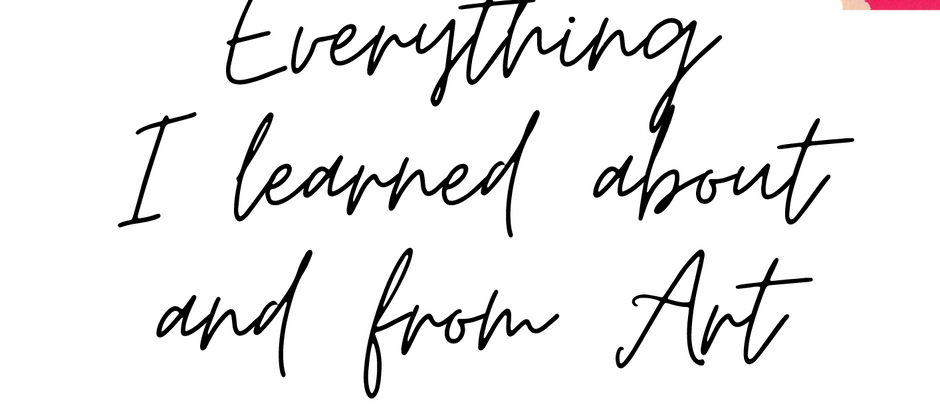 Everything
I learned about
and from Art